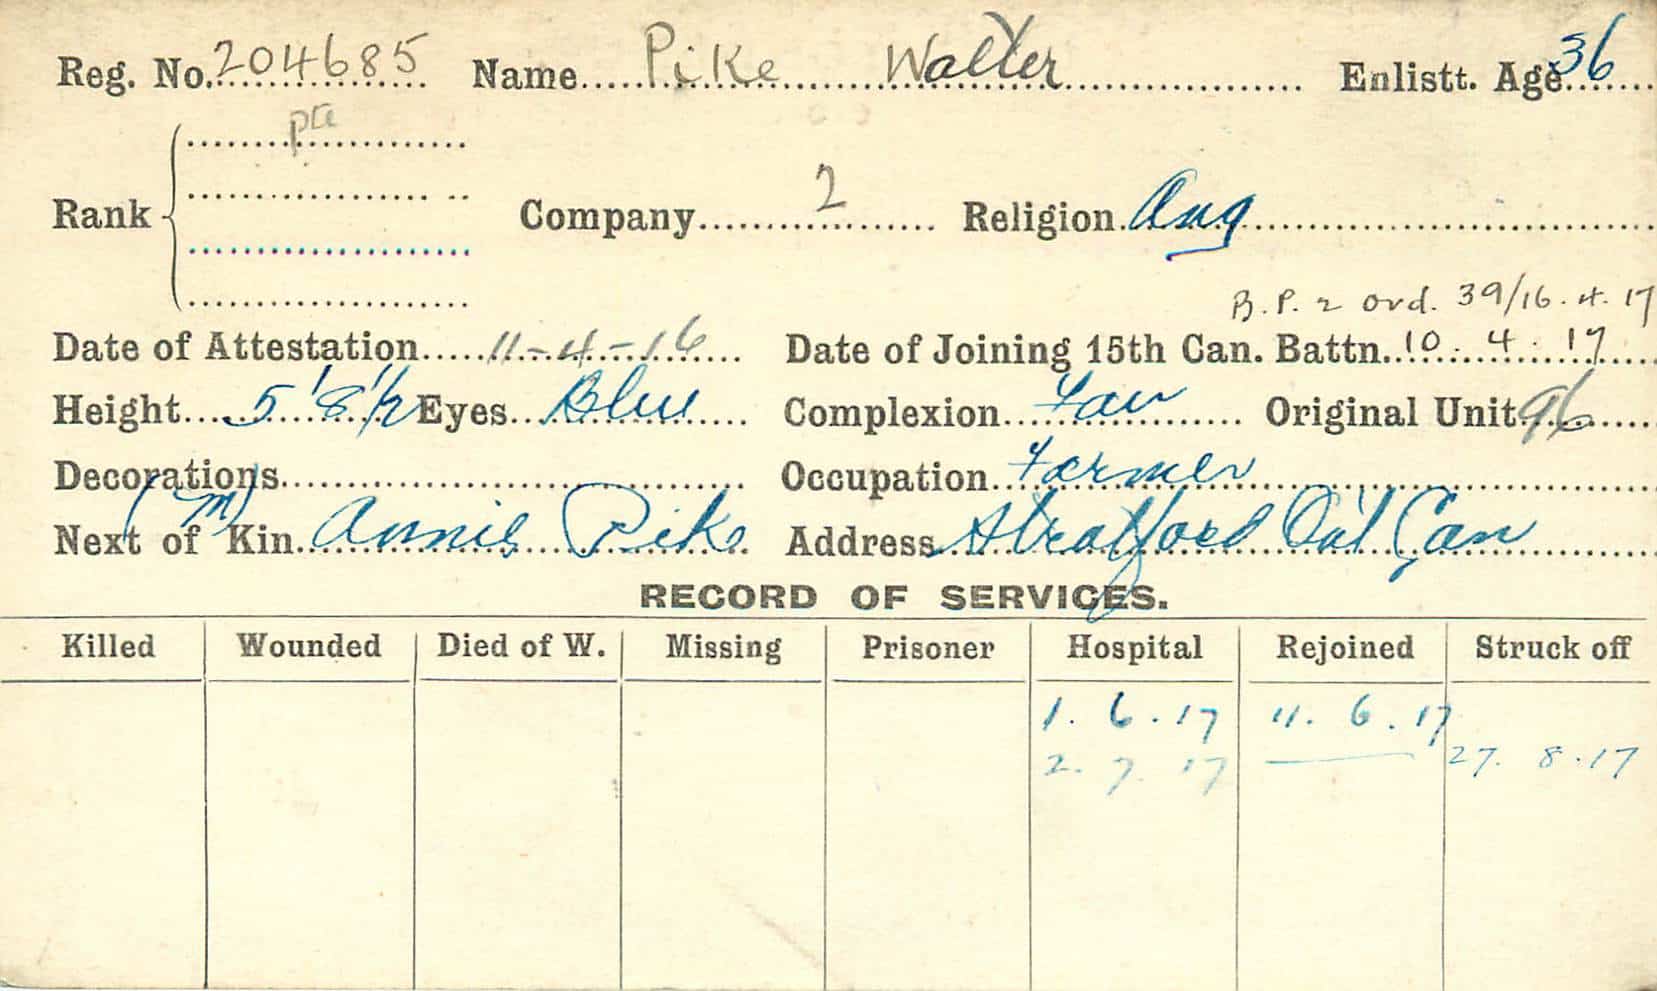 Reg. No. 204685 Name Pike Walter Enlistt. Age 36
pte
Rank Company 2 Religion Ang
B.P. 2 ord. 39/16.4.17
Date of Attestation 11-4-16 Date of Joining 15th Can. Battn. 10.4.17
Height 5'8½ Eyes Blue Complexion Fair Original Unit 96
Decorations Occupation Farmer
(M)
Next of Kin Annie Pike Address Stratford Ont Can
RECORD OF SERVICES.
Killed Wounded Died of W. Missing Prisoner Hospital Rejoined Struck off
1.6.17 11.6.17
2.7.17 27.8.17